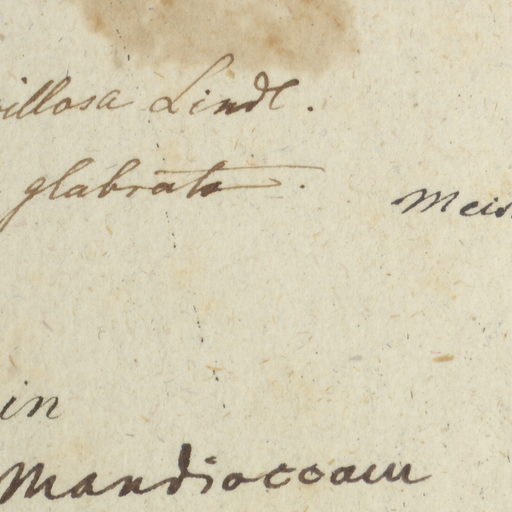 villosa Lindl.
glabrata.
Meis
in
Mandioccam